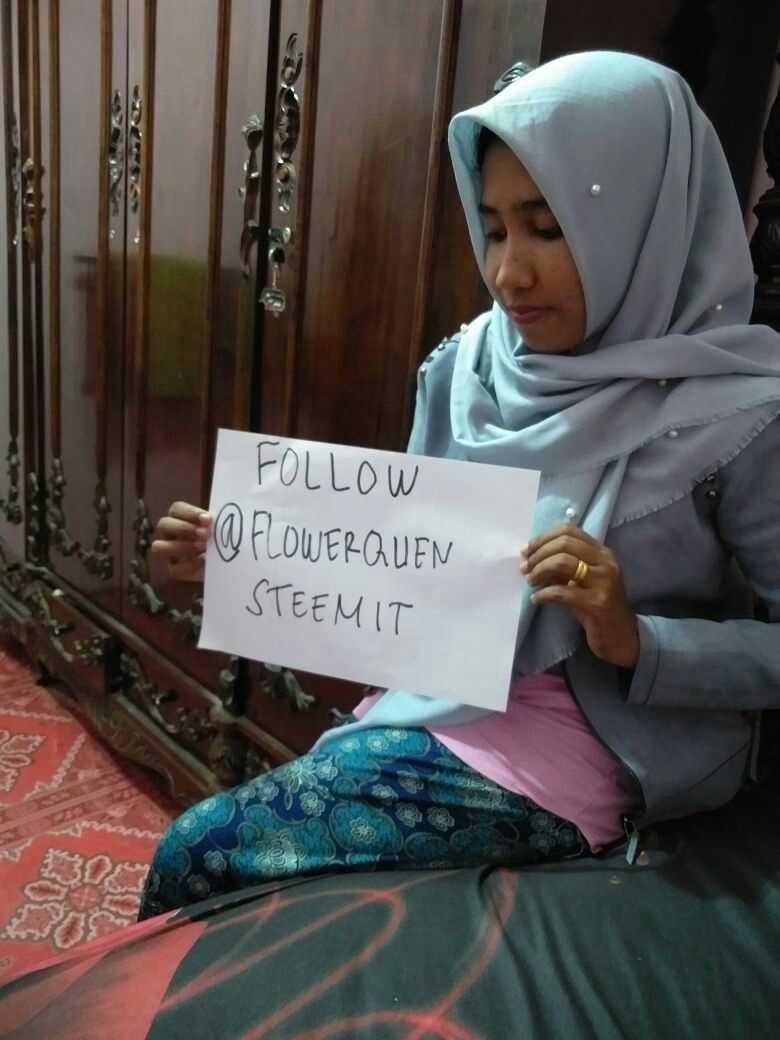 FOLLOW
@FLOWERQUEN
STEEMIT